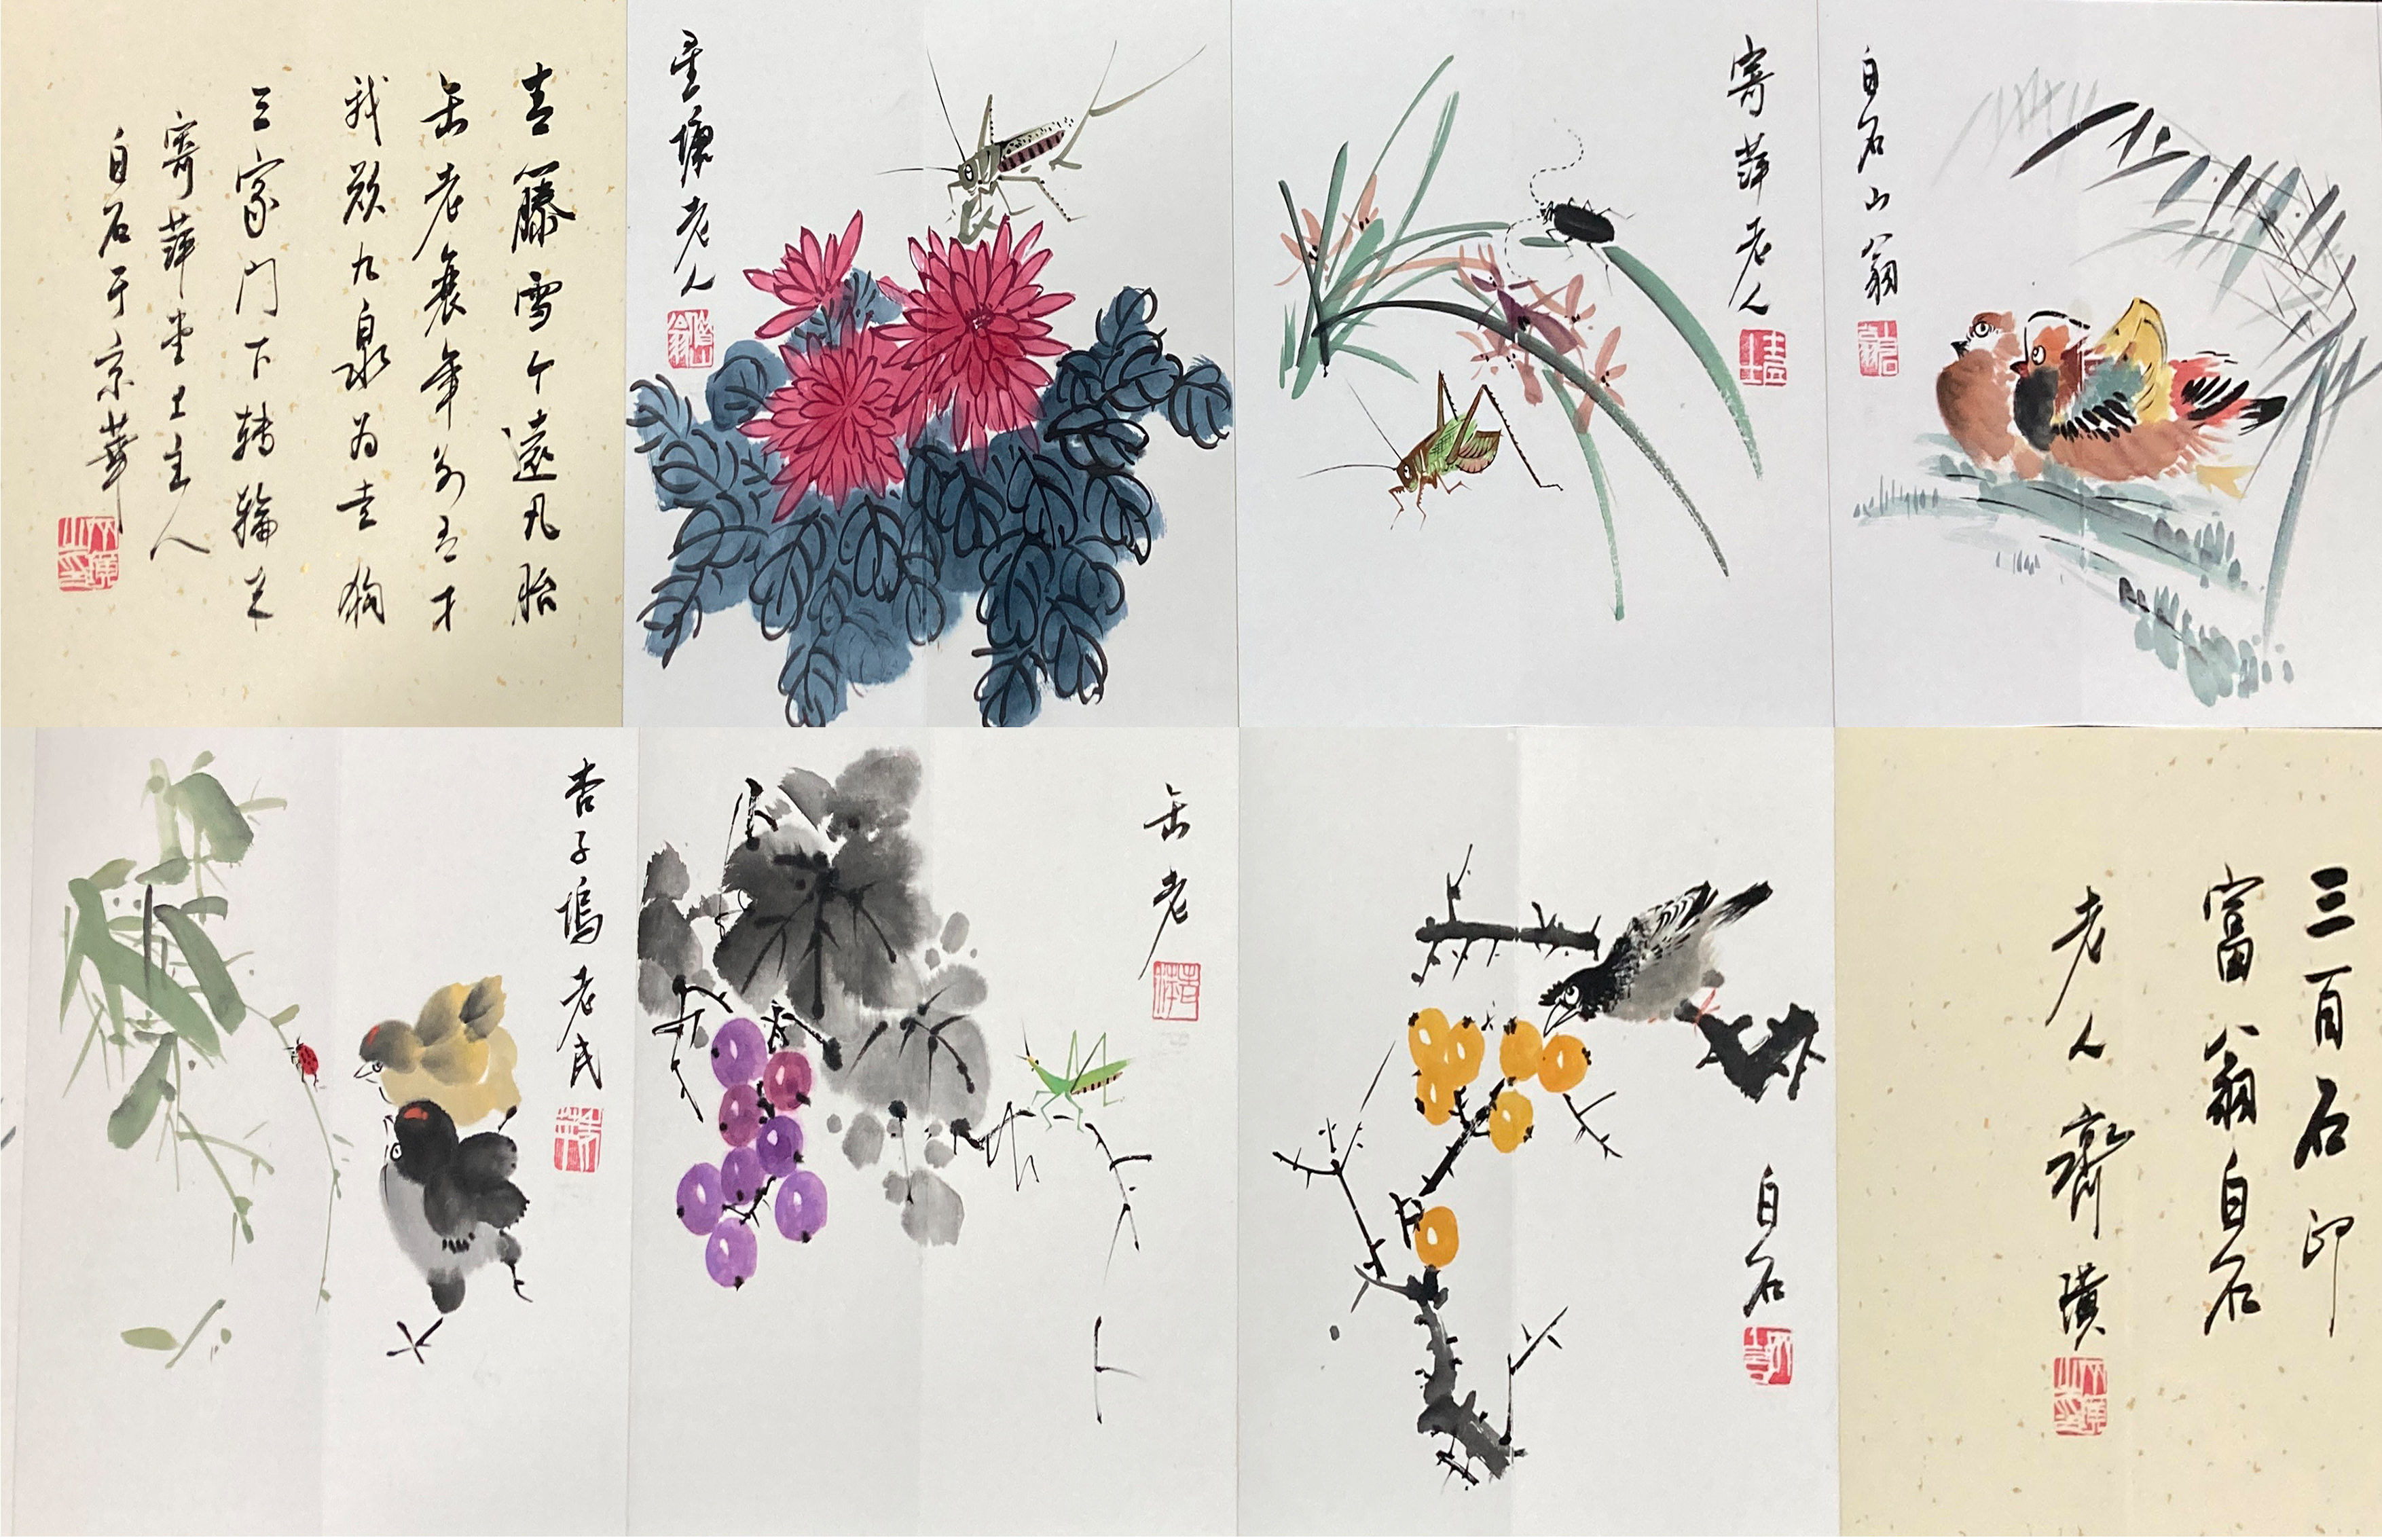 青藤雪个远凡胎
缶老衰年别有才
我欲九泉为走狗
三家门下转轮来
寄萍堂上主人
白石于京华
星塘老人
寄萍老人
白石山翁
杏子坞老民
缶老
白石
三百石印
富翁白石
老人齊璜